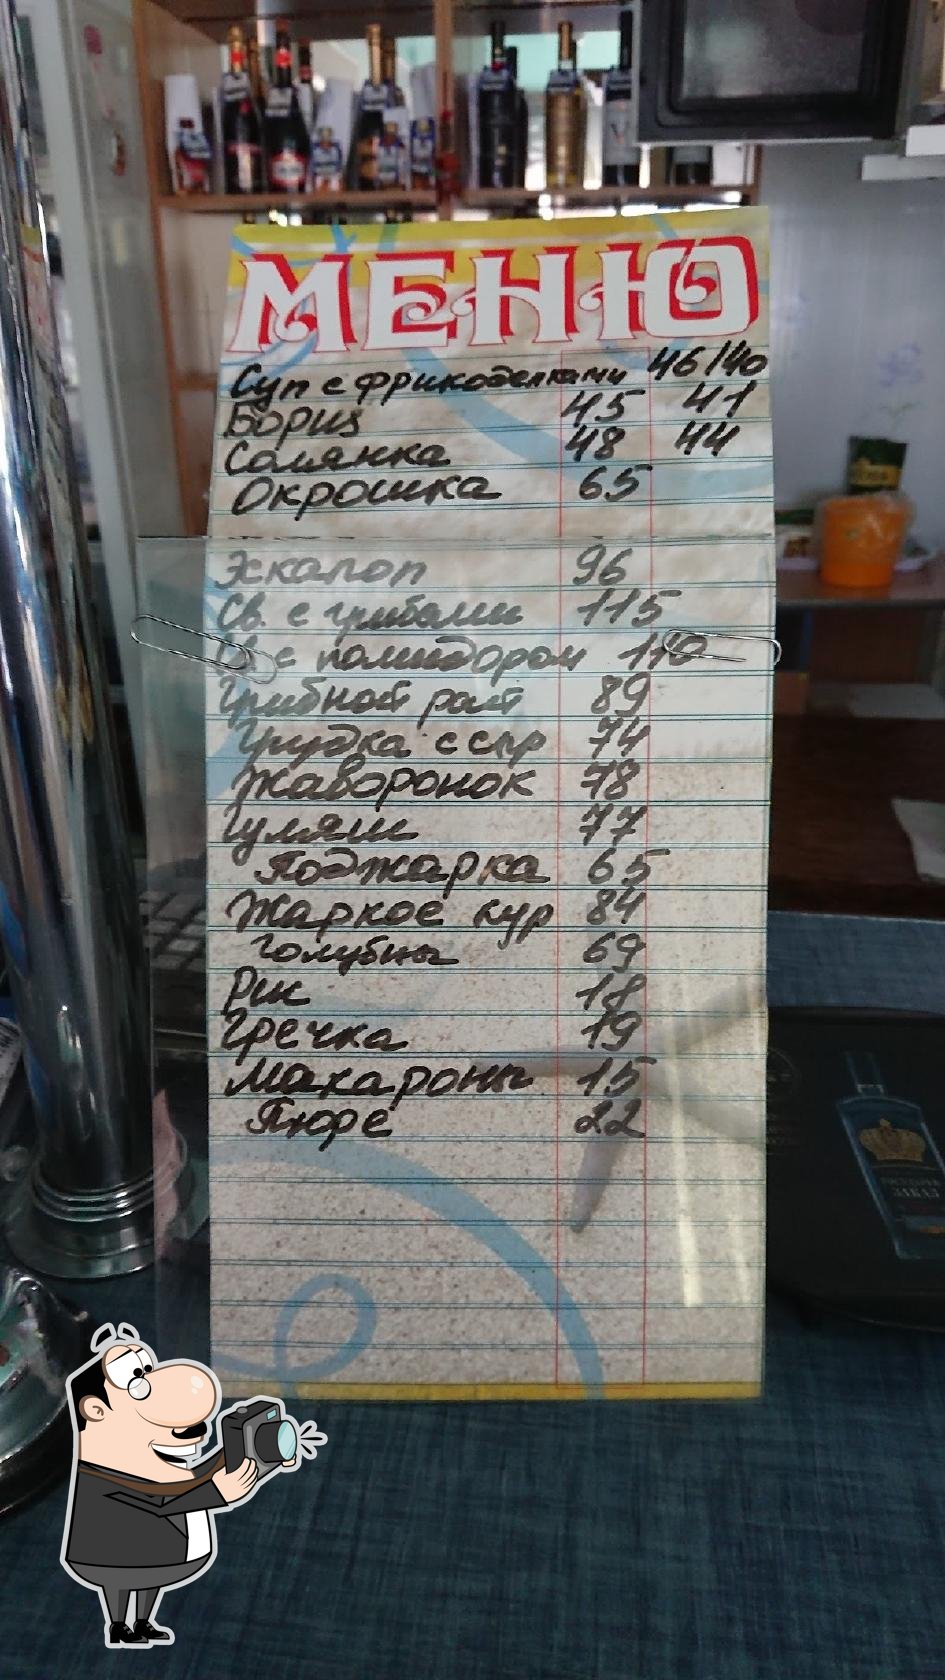 МЕНЮ
Суп с фрикодельками 46/40
Борщ 45 41
Солянка 48 44
Окрошка 65
Эскалоп 96
Св. с грибами 115
Св. с помидором 110
Грибной рай 89
Грудка с сыр 74
Жаворонок 78
Гуляш 77
Поджарка 65
Жаркое кур 84
Голубцы 69
Рис 18
Гречка 19
Макароны 15
Пюре 22